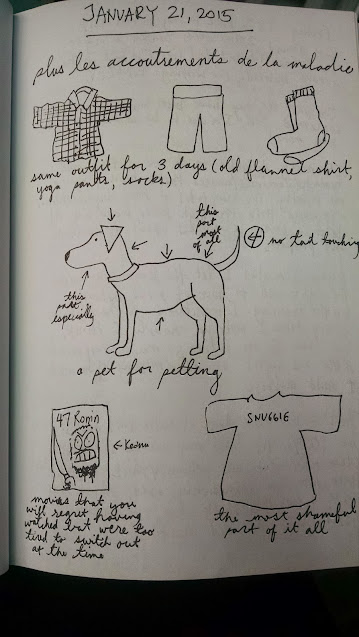 JANUARY 21, 2015
plus les accoutrements de la maladie
same outfit for 3 days (old flannel shirt,
yoga pants, socks)
this
part
most
of all
no tail touching
this
part
especially
a pet for petting
47 Ronin
← Keanu
movies that you
will regret having
watched but were too
tired to switch out
at the time
SNUGGIE
the most shameful
part of it all